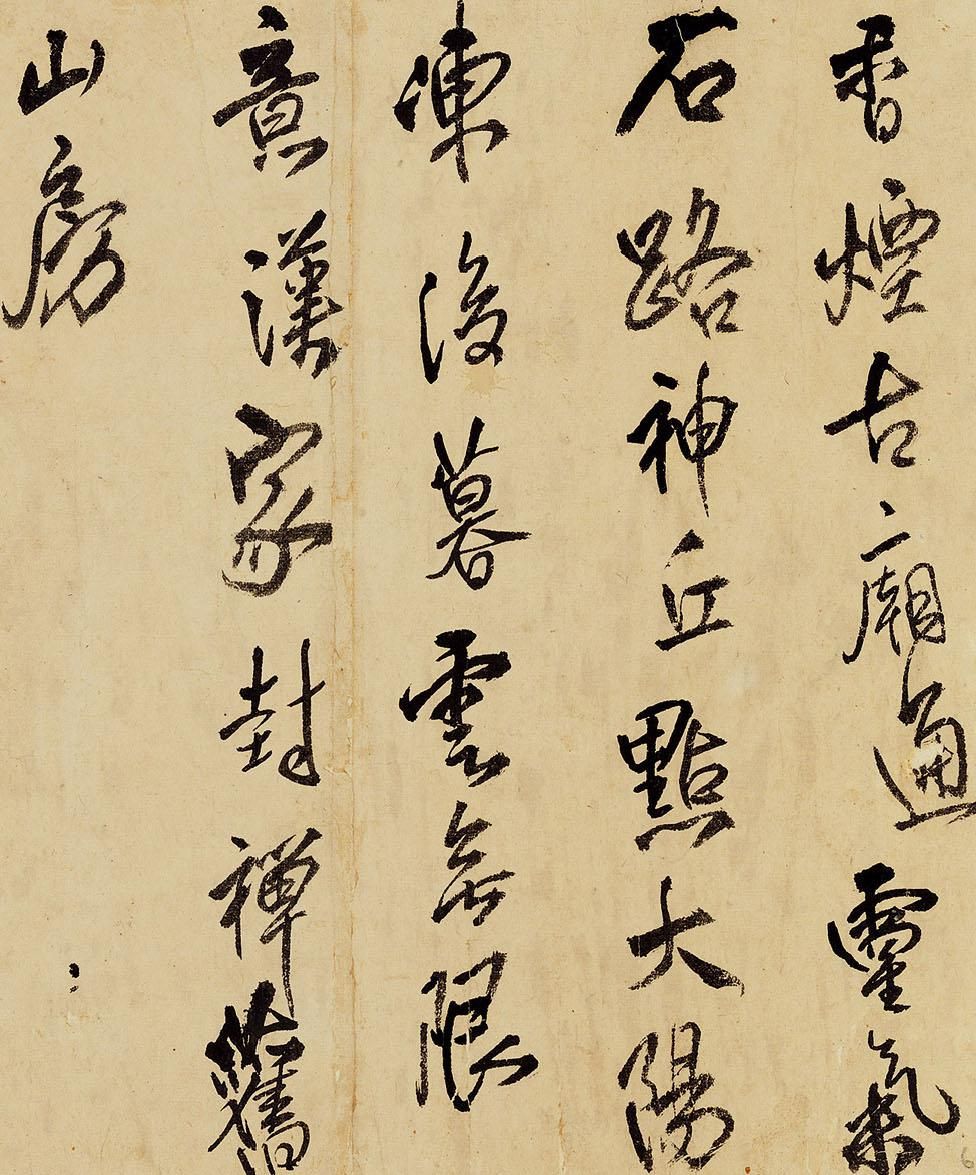 香煙古廟通靈氣
石路神丘點大陽
凍後暮雲無限
意漢家封禪舊
山房